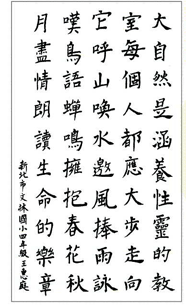 大自然是涵養性靈的教
室每個人都應大步走向
它呼山喚水邀風捧雨詠
嘆鳥語蟬鳴擁抱春花秋
月盡情朗讀生命的樂章
新北市文林國小四年級王惠庭